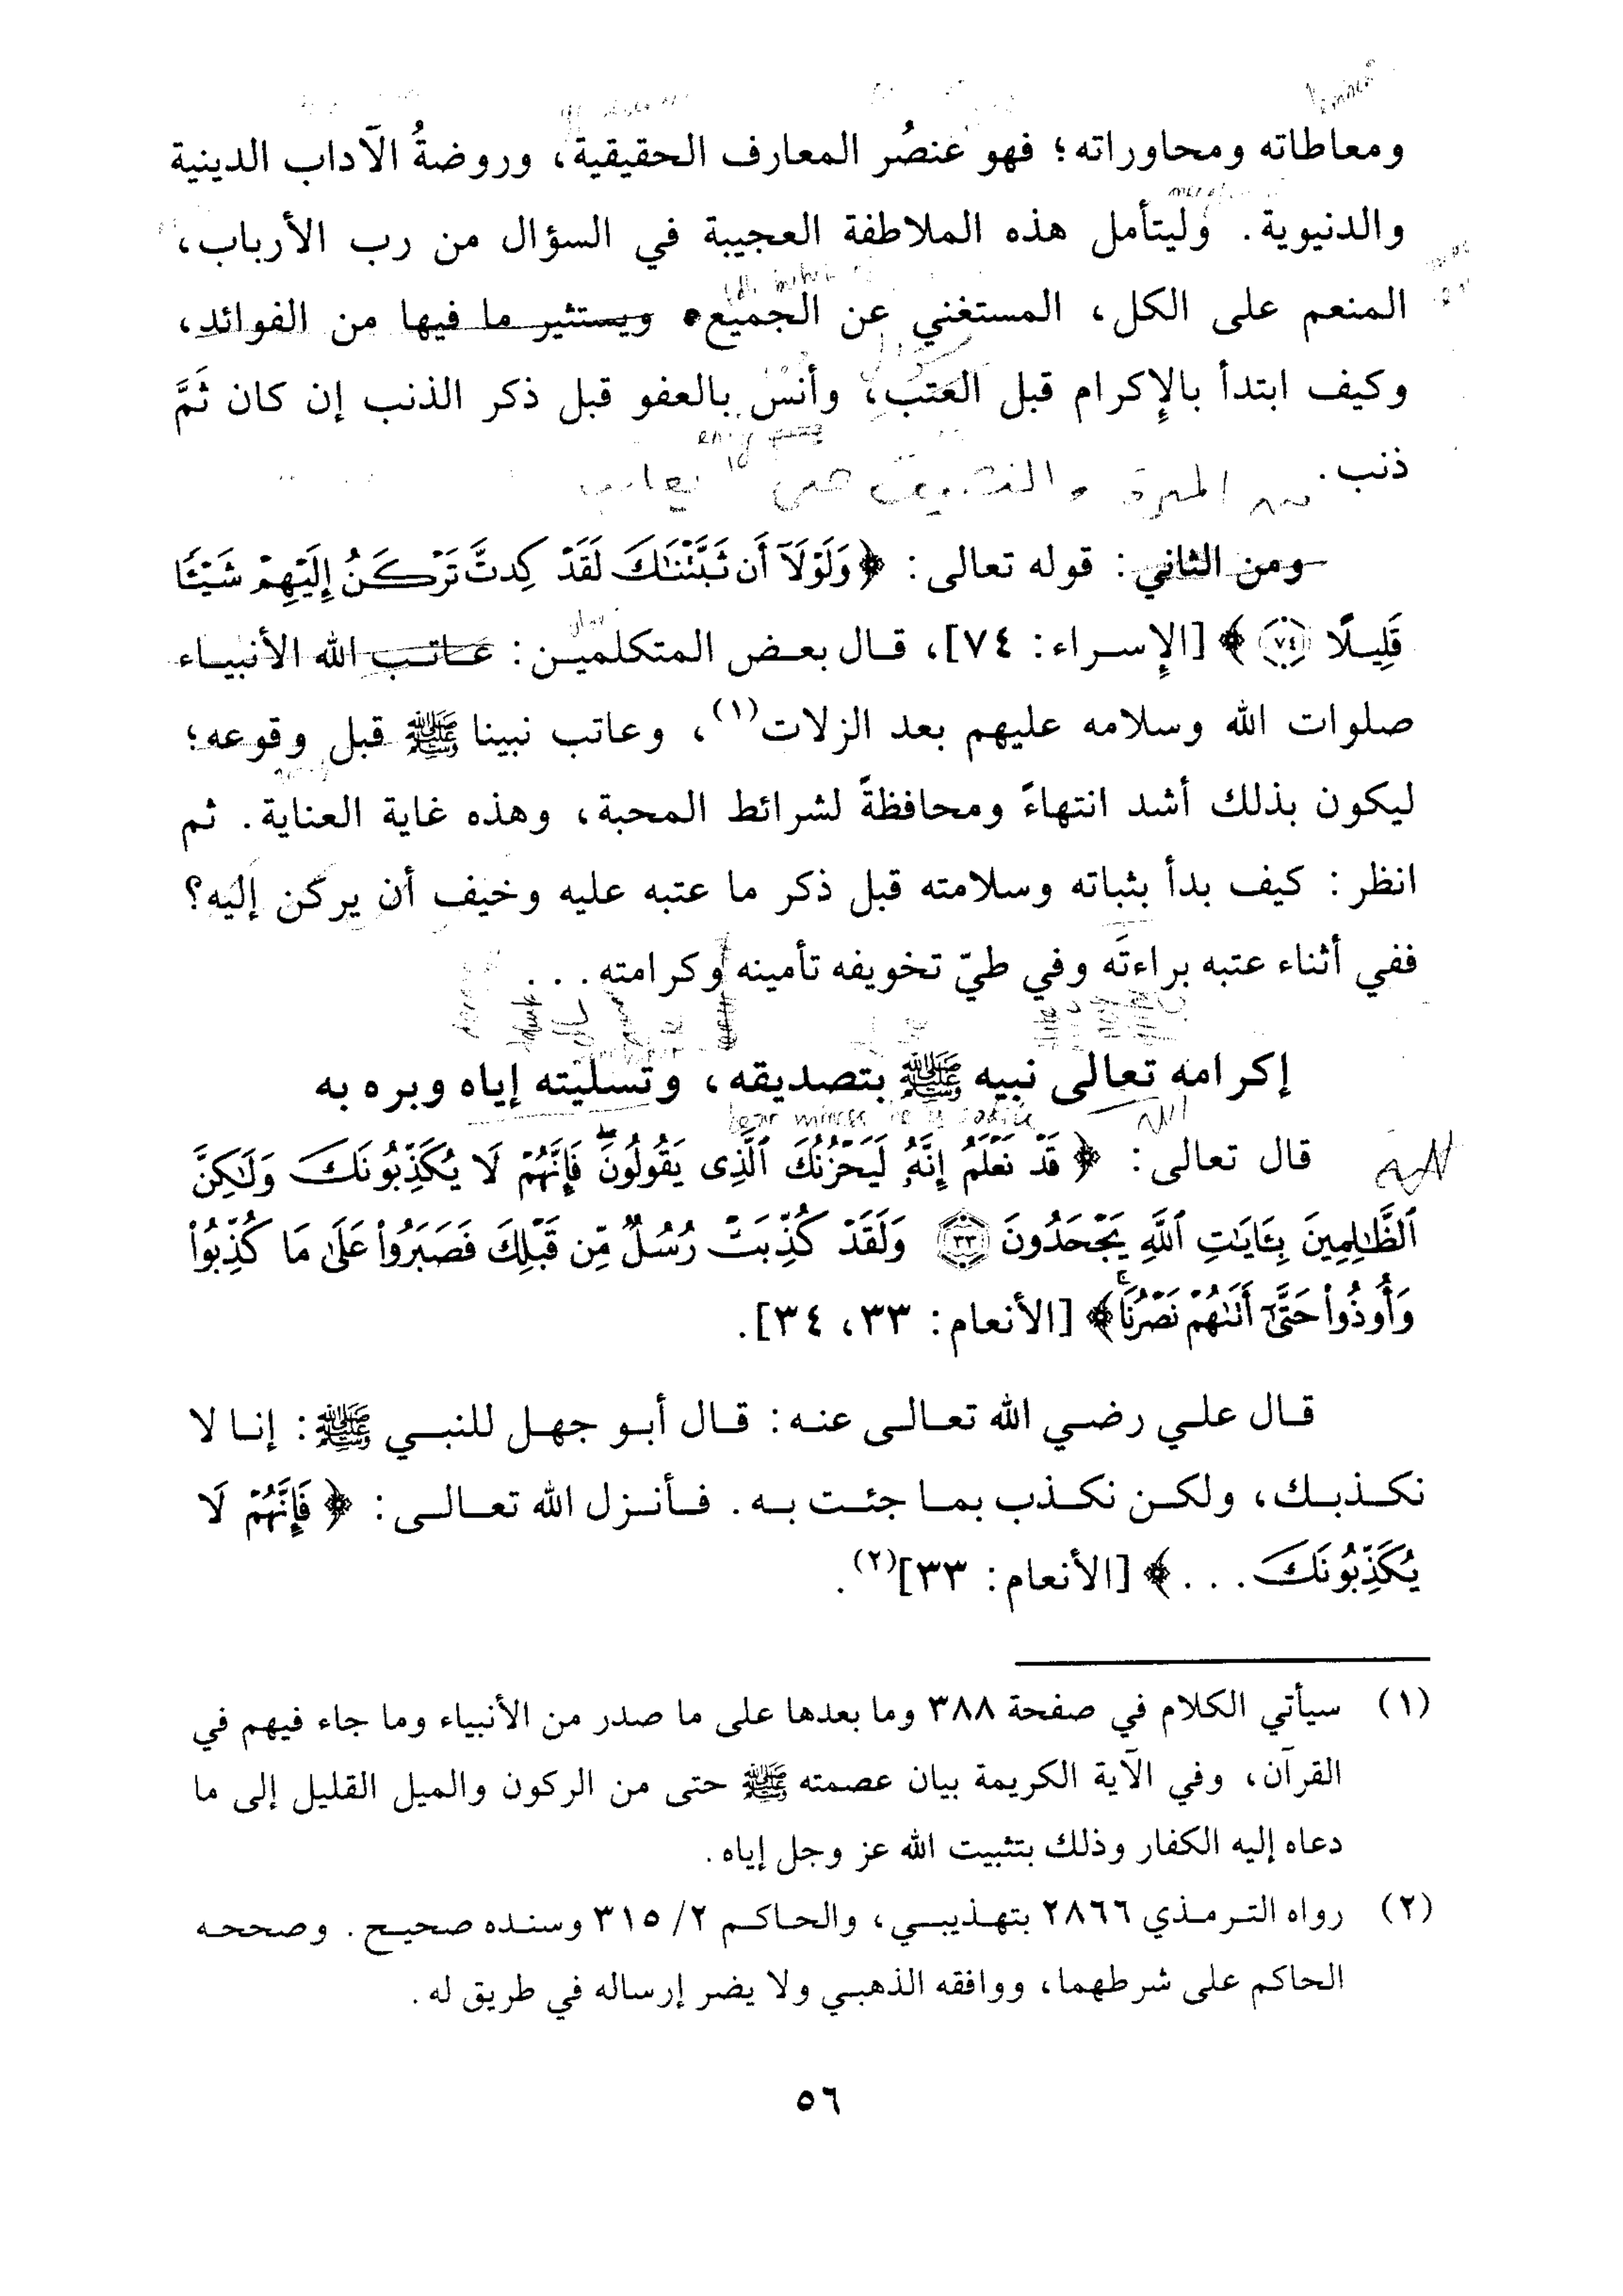 ومعاطاته ومحاوراته؛ فهو عنصُر المعارف الحقيقية، وروضةُ الآداب الدينية
والدنيوية. وليتأمل هذه الملاطفة العجيبة في السؤال من رب الأرباب،
المنعم على الكل، المستغني عن الجميع، ويستثير ما فيها من الفوائد،
وكيف ابتدأ بالإكرام قبل العتب، وأنس بالعفو قبل ذكر الذنب إن كان ثَمَّ
ذنب.
ومن الثاني: قوله تعالى: ﴿وَلَوْلَآ أَن ثَبَّتْنَٰكَ لَقَدْ كِدتَّ تَرْكَنُ إِلَيْهِمْ شَيْـًٔا
قَلِيلًا ٧٤﴾ [الإسراء: ٧٤]، قال بعض المتكلمين: عاتب الله الأنبياء
صلوات الله وسلامه عليهم بعد الزلات(١)، وعاتب نبينا ﷺ قبل وقوعه؛
ليكون بذلك أشد انتهاءً ومحافظةً لشرائط المحبة، وهذه غاية العناية. ثم
انظر: كيف بدأ بثباته وسلامته قبل ذكر ما عتبه عليه وخيف أن يركن إليه؟
ففي أثناء عتبه براءتَه وفي طيّ تخويفه تأمينه وكرامته...
إكرامه تعالى نبيه ﷺ بتصديقه، وتسليته إياه وبره به
قال تعالى: ﴿قَدْ نَعْلَمُ إِنَّهُۥ لَيَحْزُنُكَ ٱلَّذِى يَقُولُونَۖ فَإِنَّهُمْ لَا يُكَذِّبُونَكَ وَلَٰكِنَّ
ٱلظَّٰلِمِينَ بِـَٔايَٰتِ ٱللَّهِ يَجْحَدُونَ ٣٣ وَلَقَدْ كُذِّبَتْ رُسُلٌ مِّن قَبْلِكَ فَصَبَرُوا۟ عَلَىٰ مَا كُذِّبُوا۟
وَأُوذُوا۟ حَتَّىٰٓ أَتَىٰهُمْ نَصْرُنَاۚ﴾ [الأنعام: ٣٣، ٣٤].
قال علي رضي الله تعالى عنه: قال أبو جهل للنبي ﷺ: إنا لا
نكذبك، ولكن نكذب بما جئت به. فأنزل الله تعالى: ﴿فَإِنَّهُمْ لَا
يُكَذِّبُونَكَ...﴾ [الأنعام: ٣٣](٢).
(١) سيأتي الكلام في صفحة ٣٨٨ وما بعدها على ما صدر من الأنبياء وما جاء فيهم في
القرآن، وفي الآية الكريمة بيان عصمته ﷺ حتى من الركون والميل القليل إلى ما
دعاه إليه الكفار وذلك بتثبيت الله عز وجل إياه.
(٢) رواه الترمذي ٢٨٦٦ بتهذيبي، والحاكم ٢/ ٣١٥ وسنده صحيح. وصححه
الحاكم على شرطهما، ووافقه الذهبي ولا يضر إرساله في طريق له.
٥٦